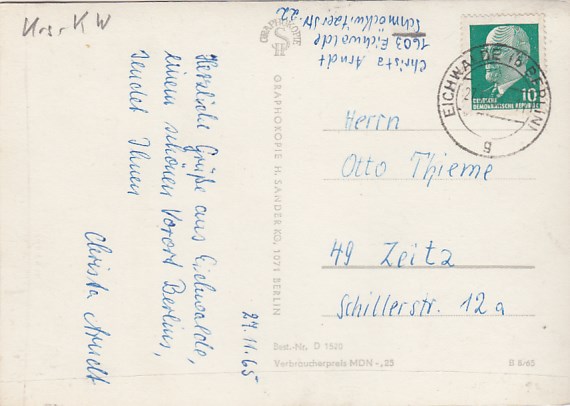 Krs. KW
Herzliche Grüße aus Eichwalde,
einem schönen Vorort Berlins,
sendet Ihnen
Christa Arndt
27.11.65
GRAPHOKOPIE
GRAPHOKOPIE H. SANDER KG, 1071 BERLIN
Christa Arndt
1603 Eichwalde
Schmöckwitzerstr. 22
10
DEUTSCHE
DEMOKRATISCHE REPUBLIK
EICHWALDE (B BERLIN)
g
Herrn
Otto Thieme
49 Zeitz
Schillerstr. 12a
Best.-Nr. D 1520
Verbraucherpreis MDN -,25
B 8/65